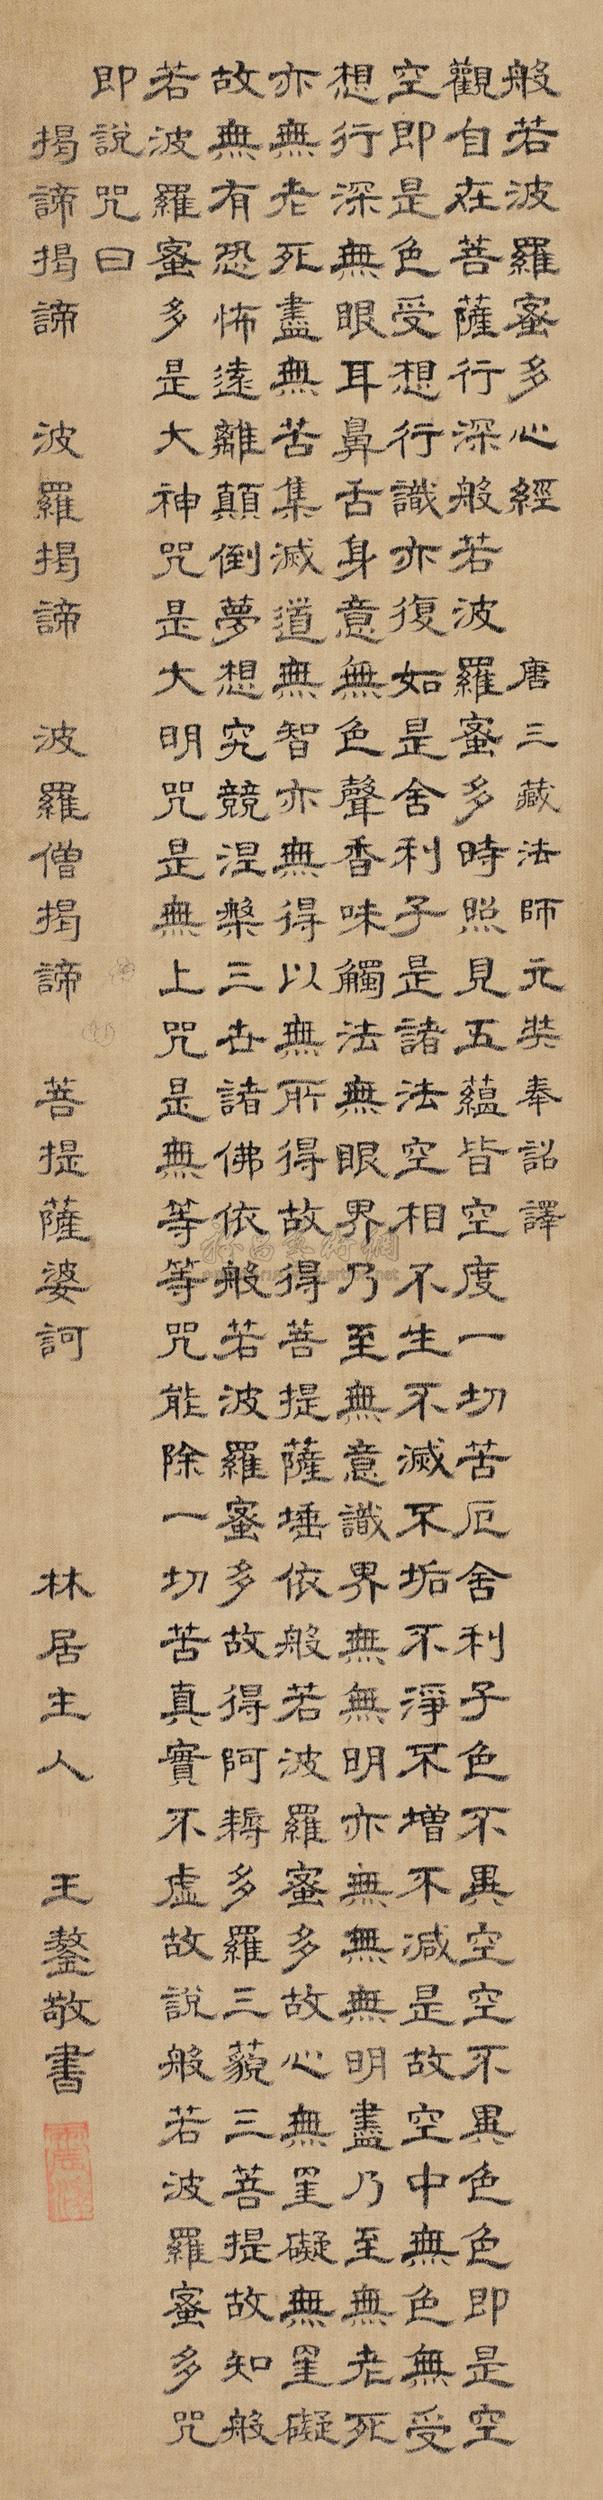 般若波羅蜜多心經 唐三藏法師元奘奉詔譯
觀自在菩薩行深般若波羅蜜多時照見五蘊皆空度一切苦厄舍利子色不異空空不異色色即是空
空即是色受想行識亦復如是舍利子是諸法空相不生不滅不垢不淨不增不減是故空中無色無受
想行深無眼耳鼻舌身意無色聲香味觸法無眼界乃至無意識界無無明亦無無無明盡乃至無老死
亦無老死盡無苦集滅道無智亦無得以無所得故得菩提薩埵依般若波羅蜜多故心無罣礙無罣礙
故無有恐怖遠離顛倒夢想究競涅槃三世諸佛依般若波羅蜜多故得阿耨多羅三藐三菩提故知般
若波羅蜜多是大神咒是大明咒是無上咒是無等等咒能除一切苦真實不虛故說般若波羅蜜多咒
即說咒曰
揭諦揭諦 波羅揭諦 波羅僧揭諦 菩提薩婆訶 林居主人 王鏊敬書